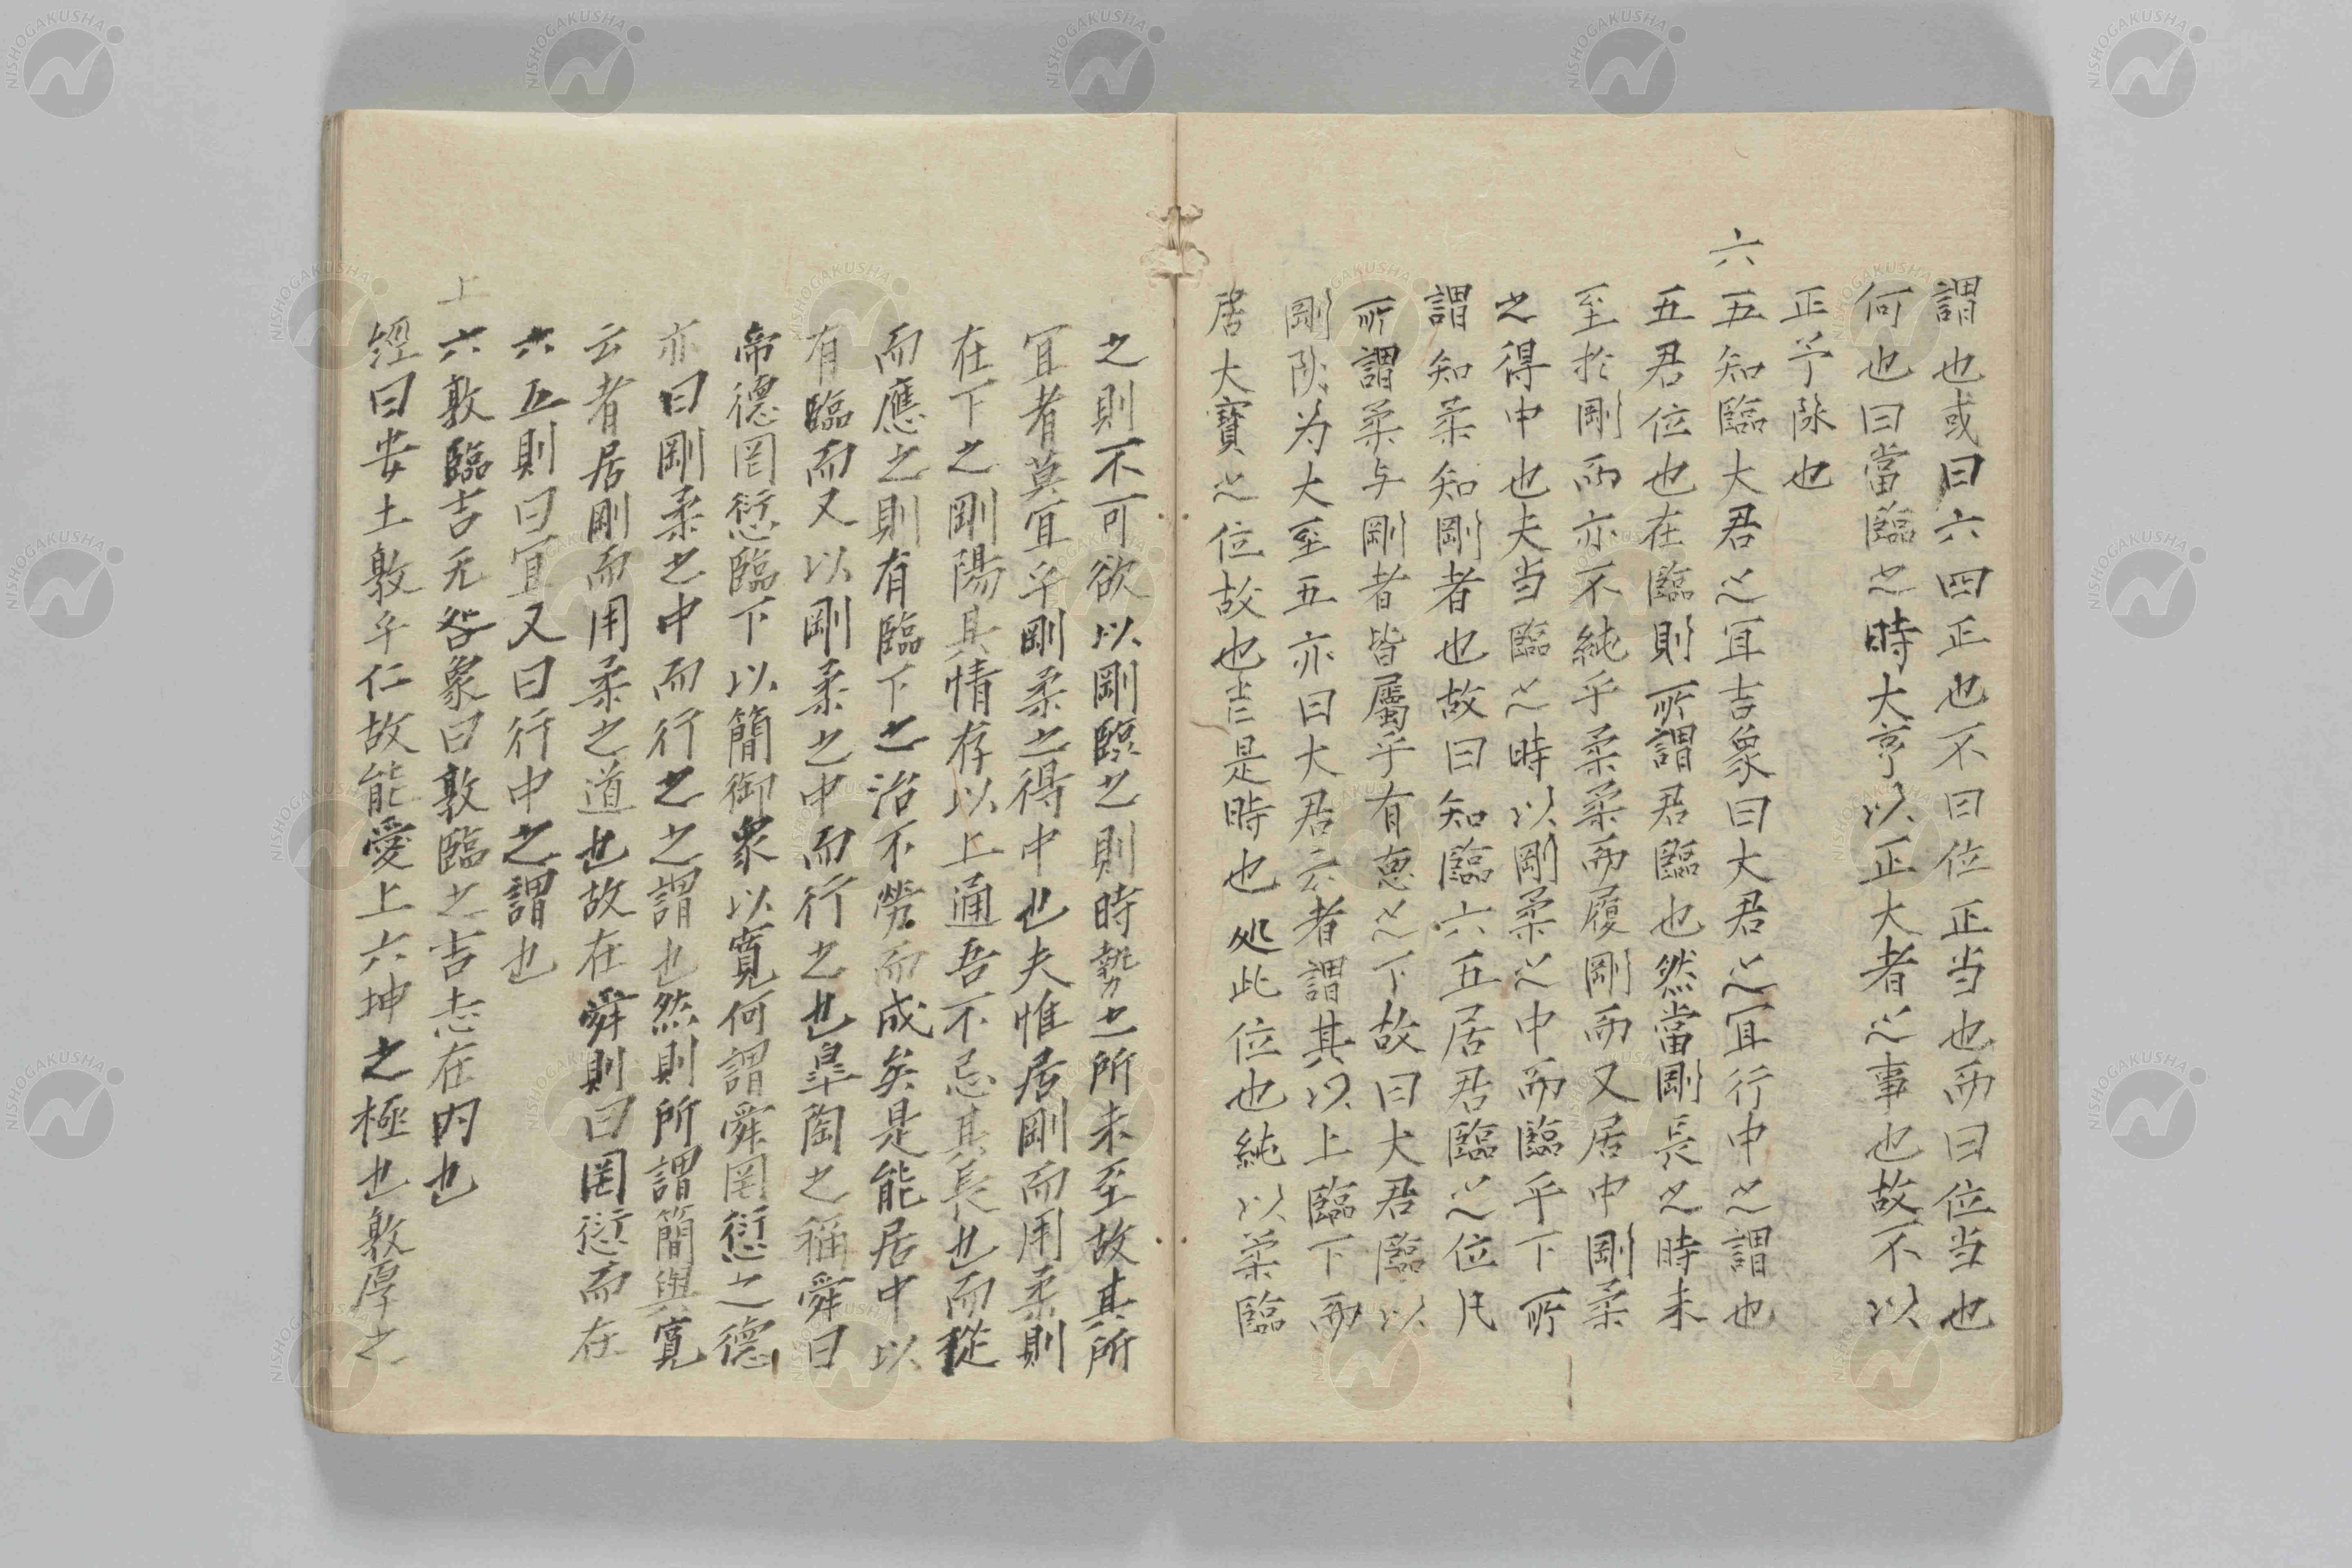 謂也或曰六四正也不曰位正当也而曰位当也
何也曰當臨之時大亨以正大者之事也故不以
正予陰也
六五知臨大君之宜吉象曰大君之宜行中之謂也
五君位也在臨則所謂君臨也然當剛長之時未
至於剛而亦不純乎柔柔而履剛而又居中剛柔
之得中也夫当臨之時以剛柔之中而臨乎下所
謂知柔知剛者也故曰知臨六五居君臨之位凡
所謂柔与剛者皆屬乎有恵之下故曰大君臨以
剛陽为大至五亦曰大君云者謂其以上臨下而
居大寶之位故也是時也処此位也純以柔臨
之則不可欲以剛臨之則時勢之所未至故其所
宜者莫宜乎剛柔之得中也夫惟居剛而用柔則
在下之剛陽其情存以上通吾不忌其長也而從
而應之則有臨下之治不勞而成矣是能居中以
有臨而又以剛柔之中而行之也皐陶之稱舜曰
帝德罔愆臨下以簡御衆以寬何謂舜罔愆之德
亦曰剛柔之中而行之之謂也然則所謂簡與寬
云者居剛而用柔之道也故在舜則曰罔愆而在
六五則曰宜又曰行中之謂也
上六敦臨吉无咎象曰敦臨之吉志在内也
經曰安土敦乎仁故能愛上六坤之極也敦厚之
NISHOGAKUSHA